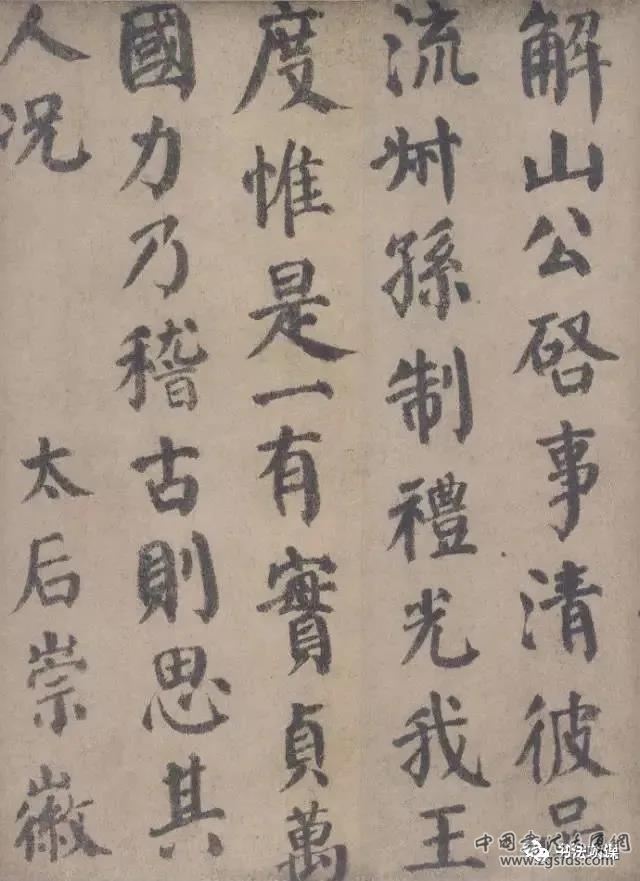 解山公啓事清彼品
流叔孫制禮光我王
度惟是一有實貞萬
國力乃稽古則思其
人况 太后崇徽
www.zgsfds.com